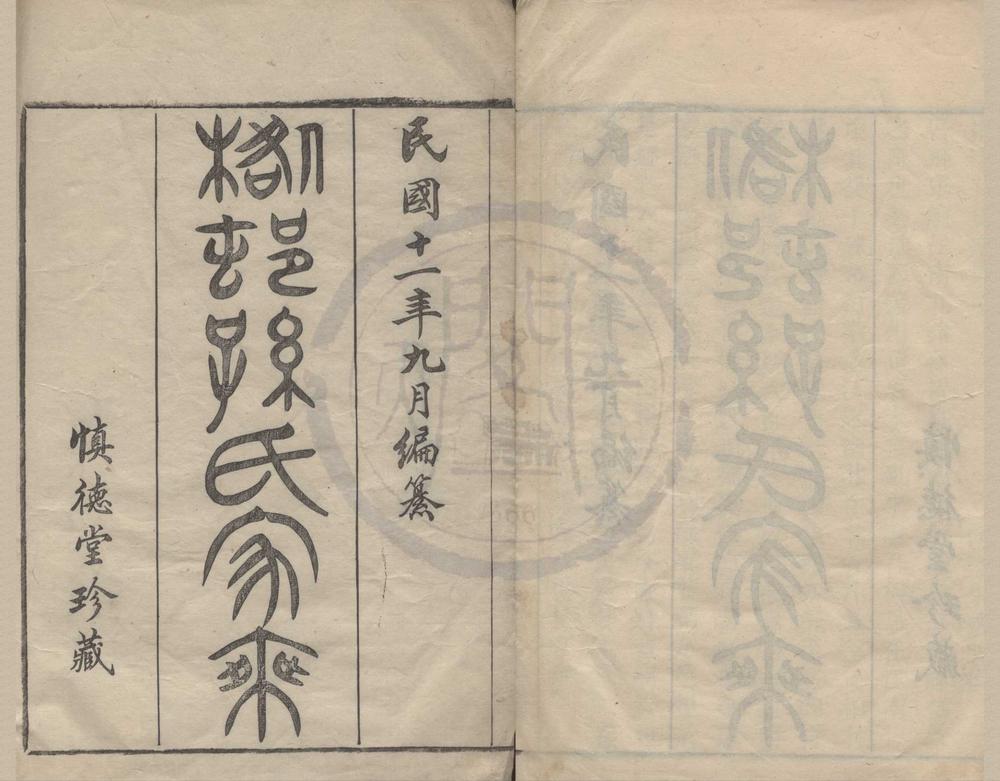 民國十一年九月編纂
邨孫氏家乘
慎德堂珍藏